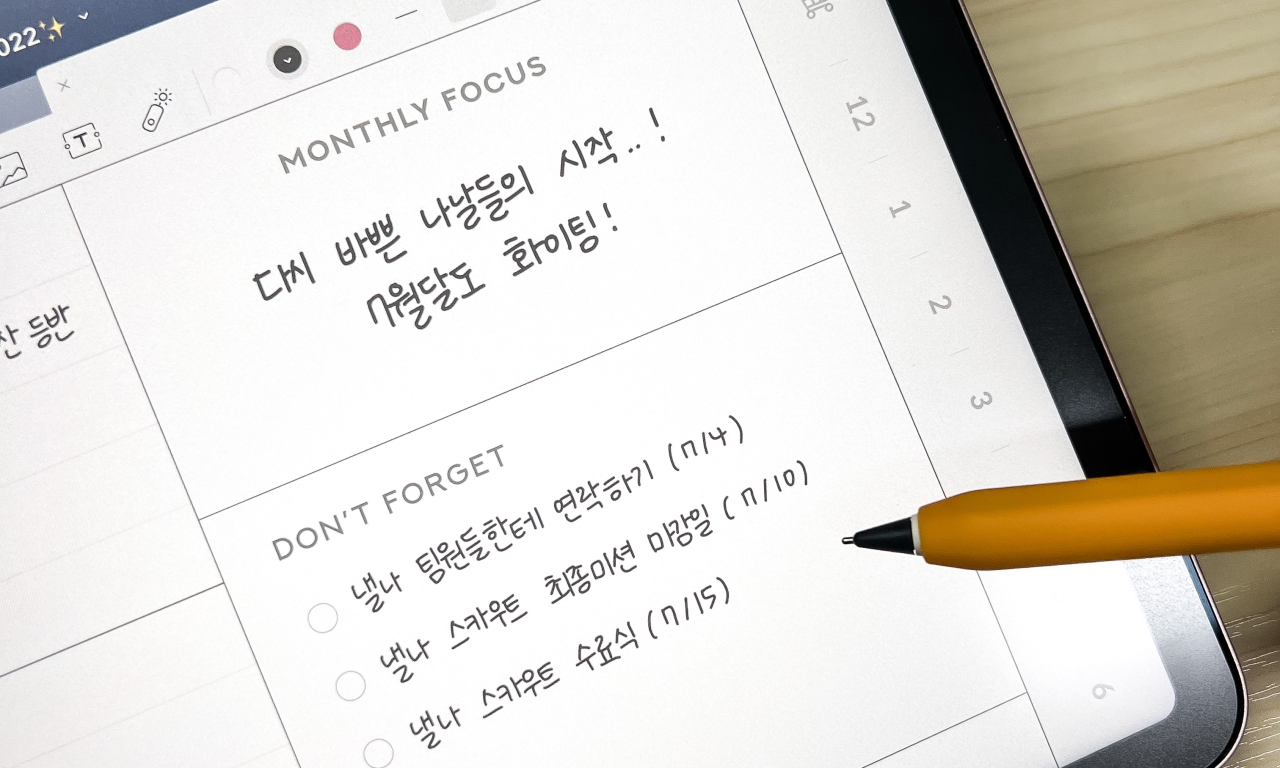 022✨
MONTHLY FOCUS
다시 바쁜 나날들의 시작.. !
7월달도 화이팅!
등반
DON'T FORGET
낼나 팀원들한테 연락하기 (7/4)
낼나 스카우트 최종미션 마감일 (7/10)
낼나 스카우트 수료식 (7/15)
12
1
2
3
6